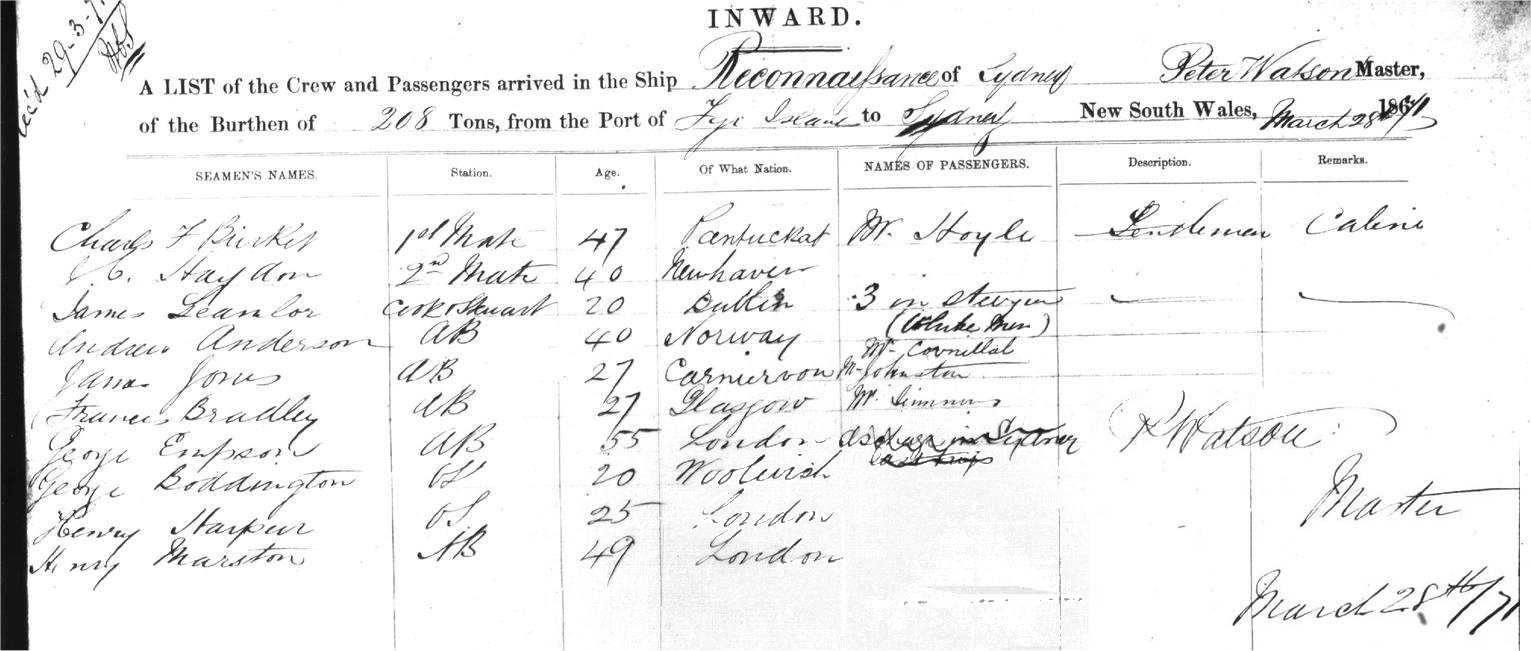 INWARD.
29-3-7
A LIST of the Crew and Passengers arrived in the Ship Reconnaissance of Sydney Peter Watson Master,
of the Burthen of 208 Tons, from the Port of Fiji Island to Sydney New South Wales, March 28th 1871
SEAMEN'S NAMES. Station. Age. Of What Nation. NAMES OF PASSENGERS. Description. Remarks.
Charles F 1st Mate 47 Pantucket Mr. Hoyle Gentlemen Cabine
Haydon 2nd Mate 40 Newhaven
James Cook & Steuart 20 Dublin 3 in
Andrew Anderson AB 40 Norway (White Men)
Mr.
James Jones AB 27 Carniervon Mr Johnston
Francis Bradley AB 27 Glasgow Mr.
George Empson AB 55 London in Sydney P Watson
George Boddington OS 20 Woolwish
Master
Henry Harpur OS 25 London
Henry Marston AB 49 London
March 28th/71